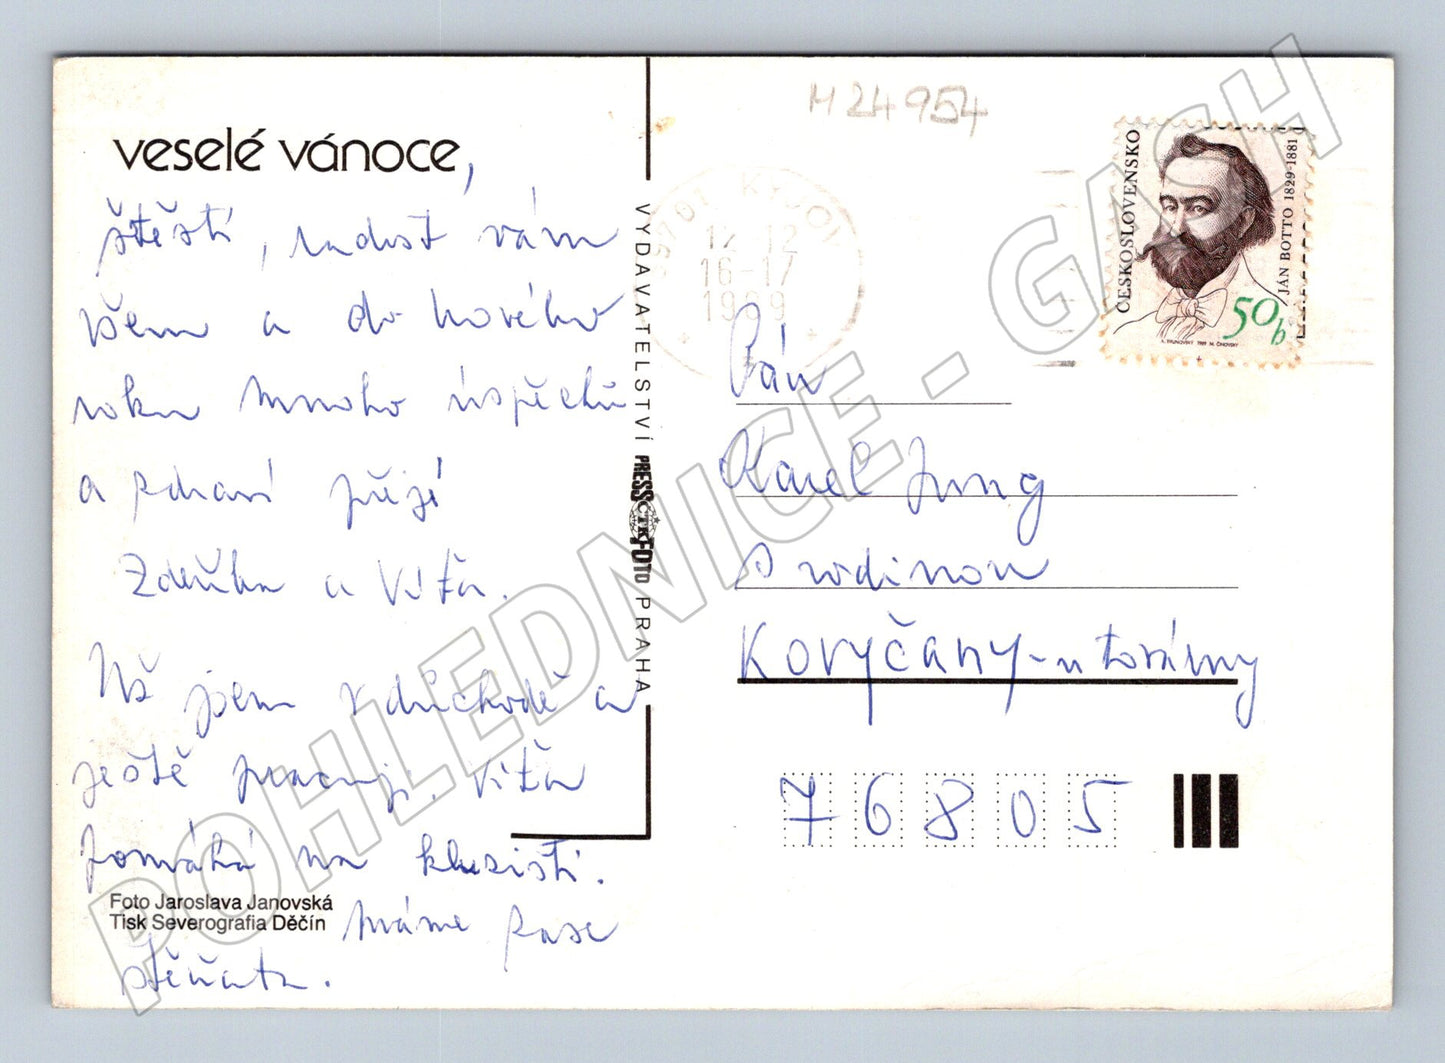 veselé vánoce,
štěstí, radost vám
všem a do nového
roku mnoho úspěchů
a zdraví přejí
Zdeňka a Víťa.
Už jsem v důchodě a
ještě pracuji. Víťa
pomáhá na kluzišti.
Máme zase
štěňata.
Foto Jaroslava Janovská
Tisk Severografia Děčín
VYDAVATELSTVÍ PRESSFOTO PRAHA
ČTK
M 24954
697 01 KYJOV
12.12
16-17
1989
ČESKOSLOVENSKO
JÁN BOTTO 1829-1881
50h
1989 M. ČINOVSKÝ
Pán
Karel Jung
s rodinou
Koryčany - u továrny
76805
POHLEDNICE - GASH